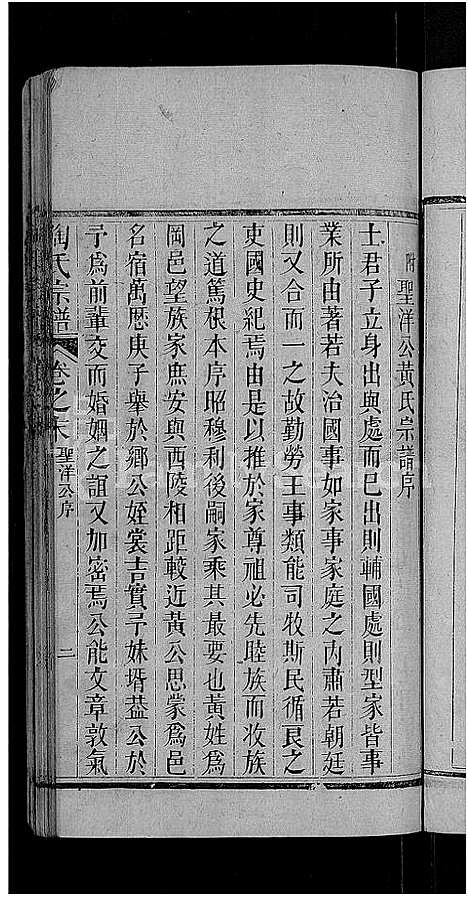 附聖洋公黃氏宗譜序
士君子立身出與處而已出則輔國處則型家皆事
業所由著若夫治國事如家事家庭之內肅若朝廷
則又合而一之故勤勞王事類能司牧斯民循良之
吏國史紀焉由是以推於家尊祖必先睦族而收族
之道篤根本序昭穆利後嗣家乘其最要也黃姓爲
岡邑望族家庶安與西陵相距較近黃公思蒙爲邑
名宿萬歷庚子舉於鄉公姪裳吉實予妹壻葢公於
予爲前輩交而婚姻之誼又加密焉公能文章敦氣
陶氏宗譜 卷之末 聖洋公序 二